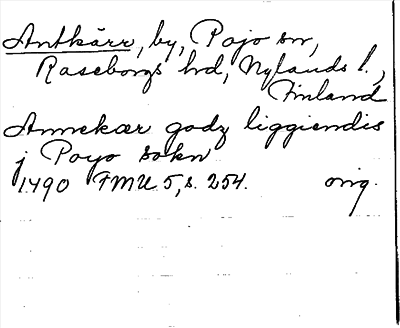 Antkärr, by, Pojo sn,
Raseborgs hd, Nylands l.,
Finland
Annekær godz liggiendis
j Poyo sokn
1490 FMU 5, s. 254. orig.